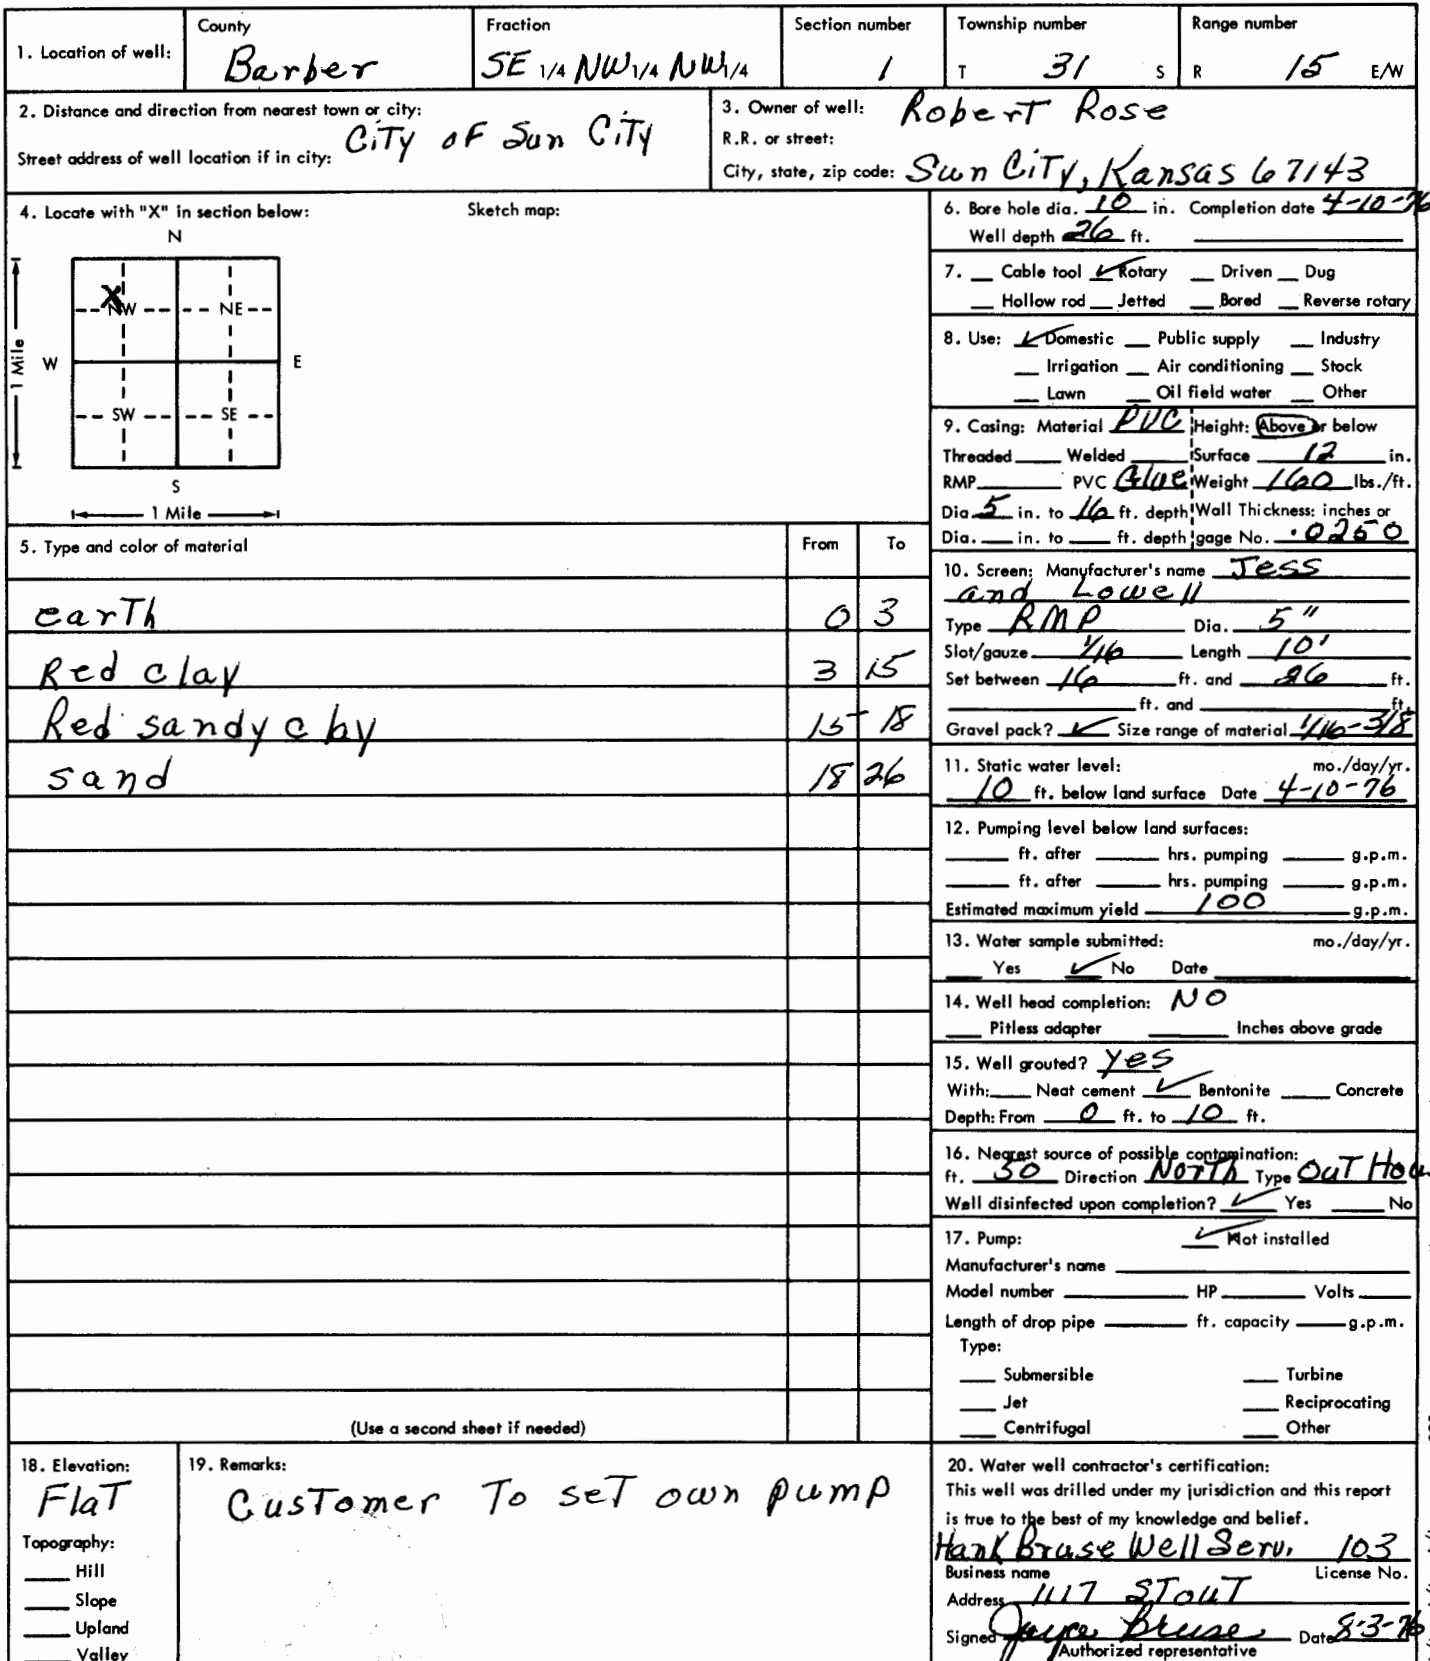 1. Location of well: County Fraction Section number Township number Range number
Barber SE 1/4 NW 1/4 NW 1/4 1 T 31 S R 15 E/W
2. Distance and direction from nearest town or city:
City of Sun City
Street address of well location if in city:
3. Owner of well: Robert Rose
R.R. or street:
City, state, zip code: Sun City, Kansas 67143
4. Locate with "X" in section below: Sketch map:
N
X
NW NE
W E
SW SE
S
1 Mile
1 Mile
5. Type and color of material From To
earth 0 3
Red clay 3 15
Red sandy clay 15 18
sand 18 26
(Use a second sheet if needed)
6. Bore hole dia. 10 in. Completion date 4-10-76
Well depth 26 ft.
7. Cable tool ✓ Rotary Driven Dug
Hollow rod Jetted Bored Reverse rotary
8. Use: ✓ Domestic Public supply Industry
Irrigation Air conditioning Stock
Lawn Oil field water Other
9. Casing: Material PVC Height: Above or below
Threaded Welded Surface 12 in.
RMP PVC Glue Weight 160 lbs./ft.
Dia. 5 in. to 16 ft. depth Wall Thickness: inches or
Dia. in. to ft. depth gage No. .0250
10. Screen: Manufacturer's name Jess
and Lowell
Type RMP Dia. 5"
Slot/gauze 1/16 Length 10'
Set between 16 ft. and 26 ft.
ft. and ft.
Gravel pack? ✓ Size range of material 1/16-3/8
11. Static water level: mo./day/yr.
10 ft. below land surface Date 4-10-76
12. Pumping level below land surfaces:
ft. after hrs. pumping g.p.m.
ft. after hrs. pumping g.p.m.
Estimated maximum yield 100 g.p.m.
13. Water sample submitted: mo./day/yr.
Yes ✓ No Date
14. Well head completion: NO
Pitless adapter Inches above grade
15. Well grouted? yes
With: Neat cement ✓ Bentonite Concrete
Depth: From 0 ft. to 10 ft.
16. Nearest source of possible contamination:
ft. 50 Direction North Type OuT Hou
Well disinfected upon completion? ✓ Yes No
17. Pump: ✓ Not installed
Manufacturer's name
Model number HP Volts
Length of drop pipe ft. capacity g.p.m.
Type:
Submersible Turbine
Jet Reciprocating
Centrifugal Other
18. Elevation:
Flat
Topography:
Hill
Slope
Upland
Valley
19. Remarks:
Customer To set own pump
20. Water well contractor's certification:
This well was drilled under my jurisdiction and this report
is true to the best of my knowledge and belief.
Hank Bruse Well Serv. 103
Business name License No.
Address 1117 STOUT
Signed Joyce Bruse Date 8-3-76
Authorized representative